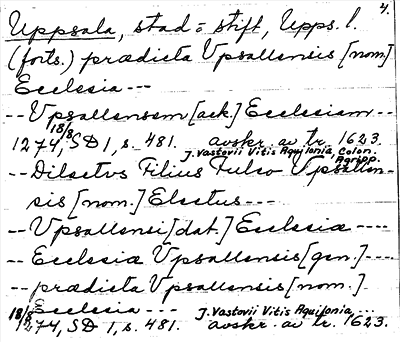 4.
Uppsala, stad = stift, Upps. l.
(forts.) prædicta Vpsallensis [nom]
Ecclesia ---
-- Vpsallensem [ack.] Ecclesiam ---
18/8
1274, SD 1, s. 481. avskr. av tr. 1623.
J. Vastovii Vitis Aquilonia, Colon.
Agripp.
-- Dilectvs Filius Fulco Vpsallen-
sis [nom.] Electus ---
-- Vpsallensi [dat.] Ecclesiæ ----
-- Ecclesiæ Vpsallensis [gen.] ----
-- prædicta Vpsallensis [nom.]
Ecclesia --- J. Vastovii Vitis Aquilonia...
18/8 1274, SD 1, s. 481. avskr. av tr. 1623.